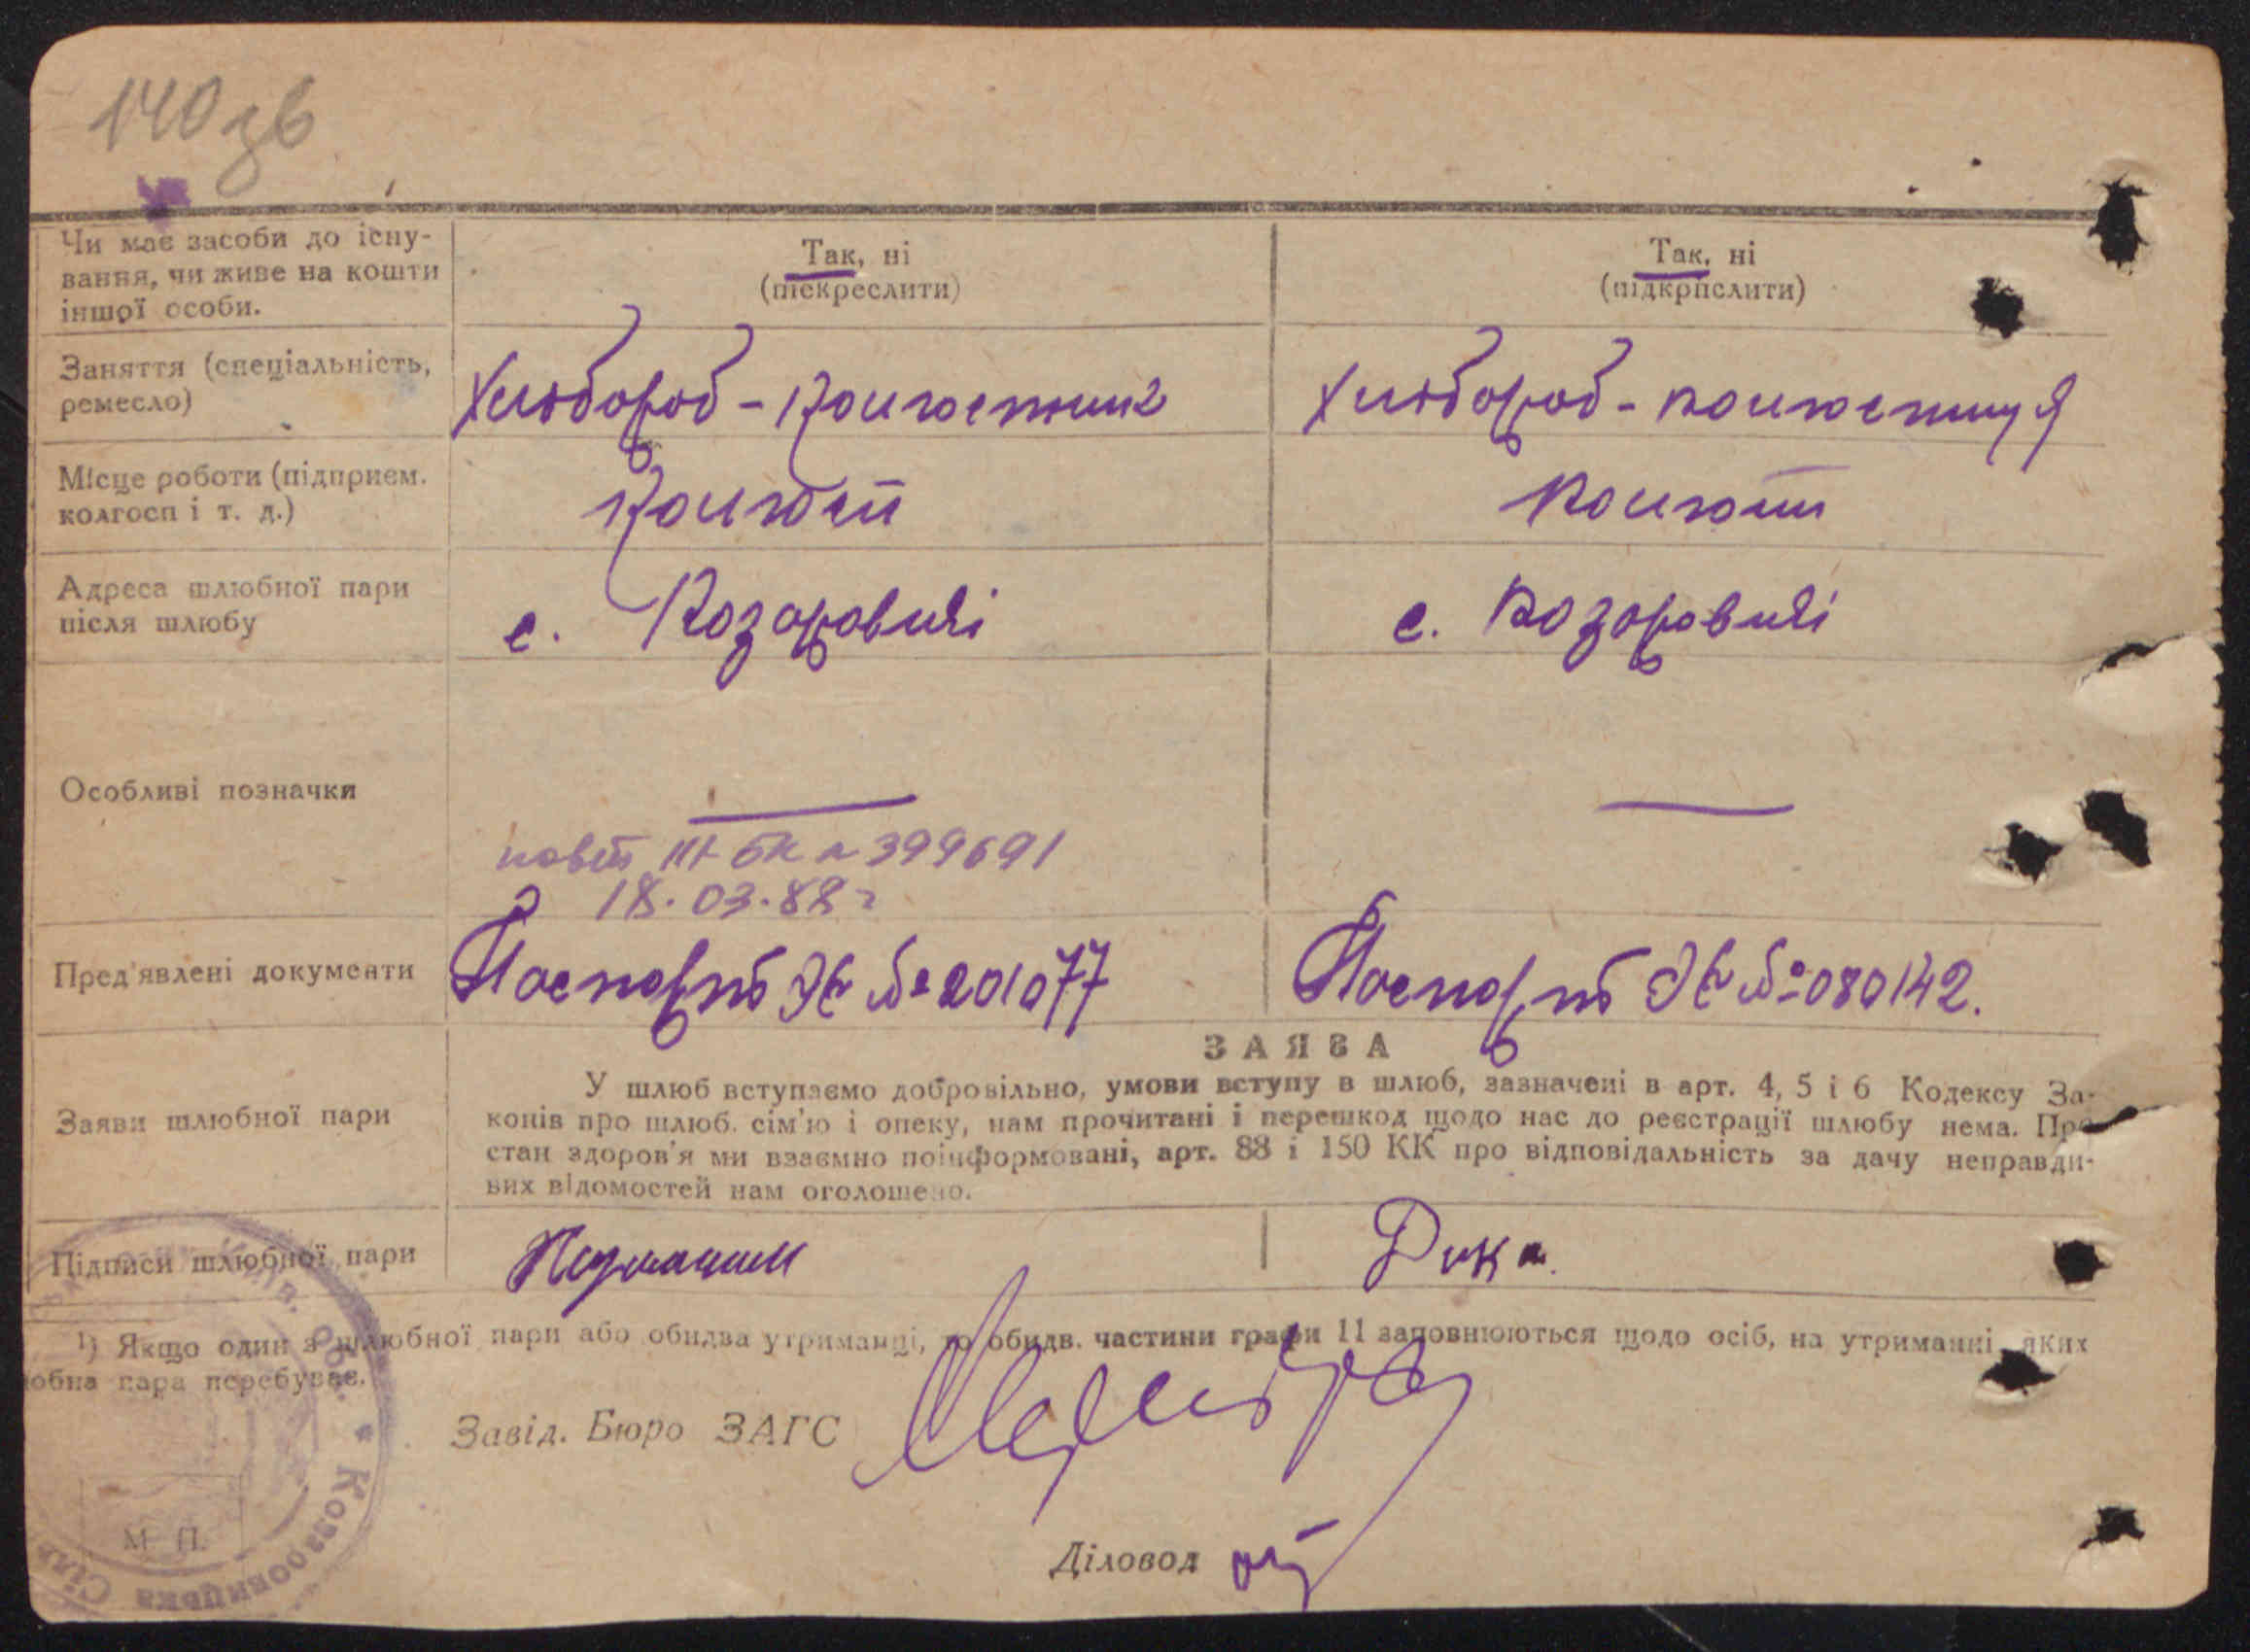 140 зв
Чи має засоби до існу-
вання, чи живе на кошти
іншої особи.
Так, ні
(підкреслити)
Так, ні
(підкрпслити)
Заняття (спеціальність,
ремесло)
Хлібороб - колгоспник
Хлібороб - колгоспниця
Місце роботи (підприєм.
колгосп і т. д.)
Колгосп
Колгосп
Адреса шлюбної пари
після шлюбу
с. Козаровичі
с. Козаровичі
Особливі позначки
повт III-БК № 399691
18.03.88 г
Пред'явлені документи
Паспорт № 201077
Паспорт № 080142.
ЗАЯВА
Заяви шлюбної пари
У шлюб вступаємо добровільно, умови вступу в шлюб, зазначені в арт. 4, 5 і 6 Кодексу За-
конів про шлюб. сім'ю і опеку, нам прочитані і перешкод щодо нас до реєстрації шлюбу нема. Про
стан здоров'я ми взаємно поінформовані, арт. 88 і 150 КК про відповідальність за дачу неправди-
вих відомостей нам оголошено.
Підписи шлюбної пари
Дика.
¹) Якщо один з шлюбної пари або обидва утриманці, то обидв. частини графи 11 заповнюються щодо осіб, на утриманні яких
юбна пара перебуває.
Завід. Бюро ЗАГС
М. П.
Діловод
Київ. обл. * Козаровицька Сіль